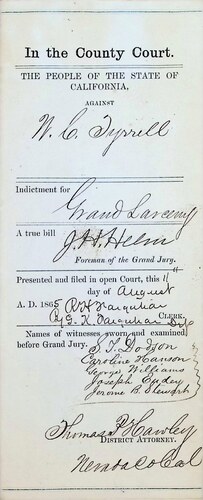 In the County Court.
THE PEOPLE OF THE STATE OF
CALIFORNIA,
AGAINST
W. C. Tyrrell
Indictment for
Grand Larceny
A true bill
J. H. Helm
Foreman of the Grand Jury.
Presented and filed in open Court, this 11"
day of August
A. D. 1865 R H Farquhar
CLERK.
By G. K. Farquhar Dep
Names of witnesses sworn and examined
before Grand Jury.
S. T. Dodson
Caroline Hanson
George Williams
Joseph Eudey
Jerome B. Stewart
Thomas P Hawley
DISTRICT ATTORNEY.
Nevada Co Cal